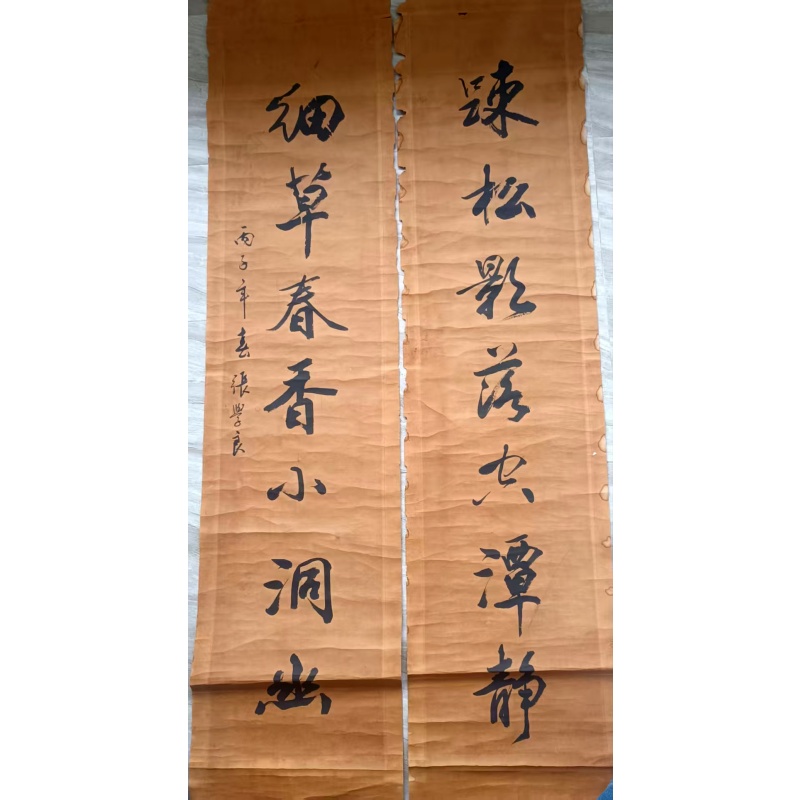 踈松影落空潭静
細草春香小洞幽
丙子年春張學良